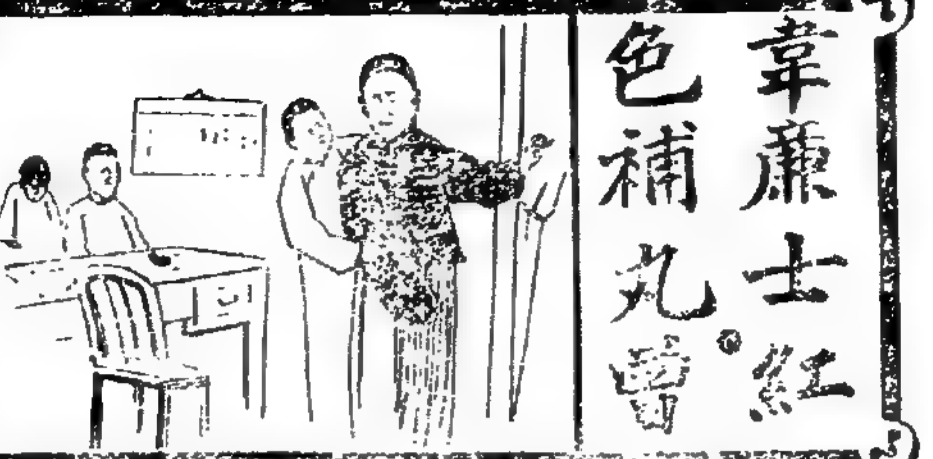 韋廉士紅
色補丸曾